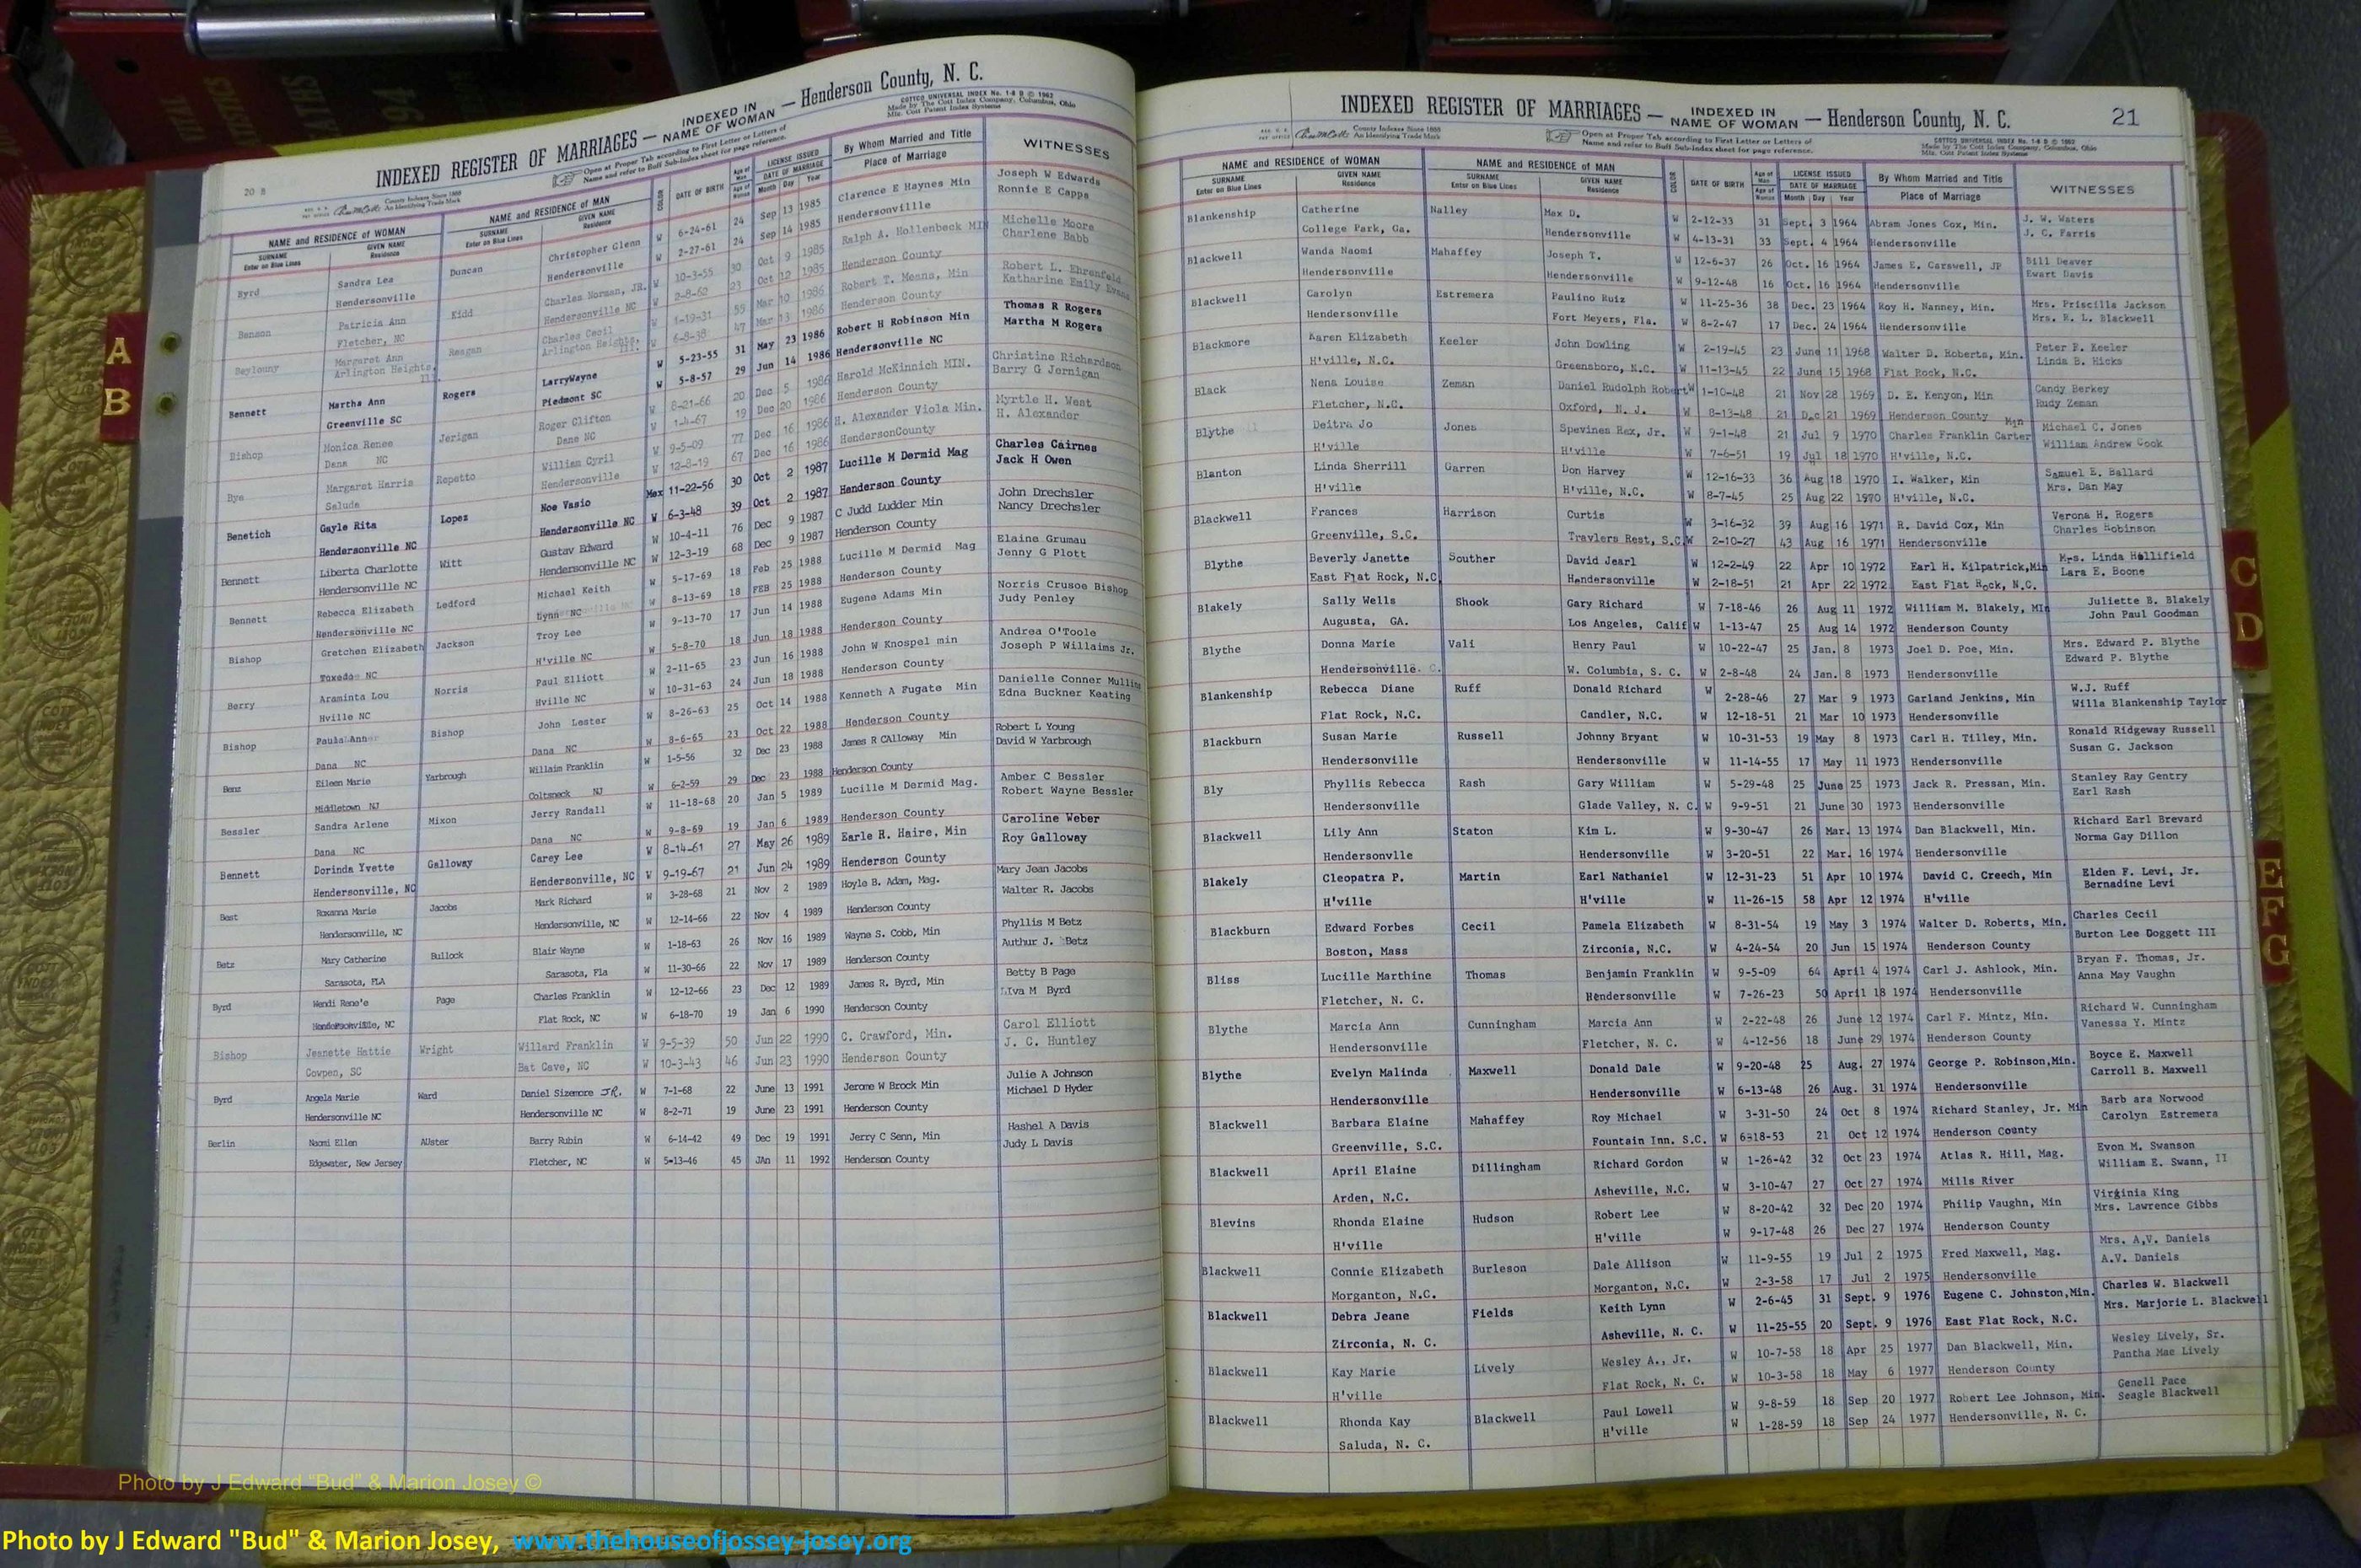 20 B
INDEXED REGISTER OF MARRIAGES — INDEXED IN NAME OF WOMAN — Henderson County, N. C.
COTTCO UNIVERSAL INDEX No. 1-8 B © 1962
Made by The Cott Index Company, Columbus, Ohio
County Indexes Since 1888
An Identifying Trade Mark
Open at Proper Tab according to First Letter or Letters of
Name and refer to Buff Sub-Index sheet for page reference.
NAME and RESIDENCE OF WOMAN NAME and RESIDENCE OF MAN COLOR DATE OF BIRTH Age of Man LICENSE ISSUED By Whom Married and Title WITNESSES
SURNAME GIVEN NAME SURNAME GIVEN NAME Age of Woman DATE OF MARRIAGE Place of Marriage
Enter on Blue Lines Residence Enter on Blue Lines Residence Month Day Year
Byrd Sandra Lea Duncan Christopher Glenn W 6-24-61 24 Sep 13 1985 Clarence E Haynes Min Joseph W Edwards
Hendersonville Hendersonville W 2-27-61 24 Sep 14 1985 Hendersonville Ronnie E Capps
Benson Patricia Ann Kidd Charles Norman, JR. W 10-3-55 30 Oct 9 1985 Ralph A. Hollenbeck MIN Michelle Moore
Fletcher, NC Hendersonville NC W 2-8-62 23 Oct 12 1985 Henderson County Charlene Babb
Baylouny Margaret Ann Reagan Charles Cecil W 1-19-31 55 Mar 10 1986 Robert T. Means, Min Robert L. Ehrenfeld
Arlington Heights, Ill. Arlington Heights, Ill. W 6-8-38 47 Mar 13 1986 Henderson County Katharine Emily Evans
Bennett Martha Ann Rogers LarryWayne W 5-23-55 31 May 23 1986 Robert H Robinson Min Thomas R Rogers
Greenville SC Piedmont SC W 5-8-57 29 Jun 14 1986 Hendersonville NC Martha M Rogers
Bishop Monica Renee Jerigan Roger Clifton W 8-21-66 20 Dec 5 1986 Harold McKinnich MIN. Christine Richardson
Dana NC Dane NC W 1-4-67 19 Dec 20 1986 Henderson County Barry G Jernigan
Bye Margaret Harris Repetto William Cyril W 9-5-09 77 Dec 16 1986 H. Alexander Viola Min. Myrtle H. West
Saluda Hendersonville W 12-8-19 67 Dec 16 1986 HendersonCounty H. Alexander
Benetich Gayle Rita Lopez Noe Vasio Mex 11-22-56 30 Oct 2 1987 Lucille M Dermid Mag Charles Cairnes
Hendersonville NC Hendersonville NC W 6-3-48 39 Oct 2 1987 Henderson County Jack H Owen
Bennett Liberta Charlotte Witt Gustav Edward W 10-4-11 76 Dec 9 1987 C Judd Ludder Min John Drechsler
Hendersonville NC Hendersonville NC W 12-3-19 68 Dec 9 1987 Henderson County Nancy Drechsler
Bennett Rebecca Elizabeth Ledford Michael Keith W 5-17-69 18 Feb 25 1988 Lucille M Dermid Mag Elaine Grumau
Hendersonville NC Lynn NC W 8-13-69 18 FEB 25 1988 Henderson County Jenny G Plott
Bishop Gretchen Elizabeth Jackson Troy Lee W 9-13-70 17 Jun 14 1988 Eugene Adams Min Norris Crusoe Bishop
Tuxedo NC H'ville NC W 5-8-70 18 Jun 18 1988 Henderson County Judy Penley
Berry Araminta Lou Norris Paul Elliott W 2-11-65 23 Jun 16 1988 John W Knospel min Andrea O'Toole
Hville NC Hville NC W 10-31-63 24 Jun 18 1988 Henderson County Joseph P Willaims Jr.
Bishop Paula Ann Bishop John Lester W 8-26-63 25 Oct 14 1988 Kenneth A Fugate Min Danielle Conner Mullins
Dana NC Dana NC W 8-6-65 23 Oct 22 1988 Henderson County Edna Buckner Keating
Benz Eileen Marie Yarbrough Willaim Franklin 1-5-56 32 Dec 23 1988 James R CAlloway Min Robert L Young
Middletown NJ Coltsneck NJ W 6-2-59 29 Dec 23 1988 Henderson County David W Yarbrough
Bessler Sandra Arlene Mixon Jerry Randall W 11-18-68 20 Jan 5 1989 Lucille M Dermid Mag. Amber C Bessler
Dana NC Dana NC W 9-8-69 19 Jan 6 1989 Henderson County Robert Wayne Bessler
Bennett Dorinda Yvette Galloway Carey Lee W 8-14-61 27 May 26 1989 Earle R. Haire, Min Caroline Weber
Hendersonville, NC Hendersonville, NC W 9-19-67 21 Jun 24 1989 Henderson County Roy Galloway
Best Roxanna Marie Jacobs Mark Richard W 3-28-68 21 Nov 2 1989 Hoyle B. Adam, Mag. Mary Jean Jacobs
Hendersonville, NC Hendersonville, NC W 12-14-66 22 Nov 4 1989 Henderson County Walter R. Jacobs
Betz Mary Catherine Bullock Blair Wayne W 1-18-63 26 Nov 16 1989 Wayne S. Cobb, Min Phyllis M Betz
Sarasota, FLA Sarasota, Fla W 11-30-66 22 Nov 17 1989 Henderson County Authur J. Betz
Byrd Wendi Rene'e Page Charles Franklin W 12-12-66 23 Dec 12 1989 James R. Byrd, Min Betty B Page
Hendersonville, NC Flat Rock, NC W 6-18-70 19 Jan 6 1990 Henderson County Liva M Byrd
Bishop Jeanette Hattie Wright Willard Franklin W 9-5-39 50 Jun 22 1990 C. Crawford, Min. Carol Elliott
Cowpen, SC Bat Cave, NC W 10-3-43 46 Jun 23 1990 Henderson County J. C. Huntley
Byrd Angela Marie Ward Daniel Sizemore JR. W 7-1-68 22 June 13 1991 Jerome W Brock Min Julie A Johnson
Hendersonville NC Hendersonville NC W 8-2-71 19 June 23 1991 Henderson County Michael D Hyder
Berlin Naomi Ellen AUster Barry Rubin W 6-14-42 49 Dec 19 1991 Jerry C Senn, Min Hashel A Davis
Edgewater, New Jersey Fletcher, NC W 5-13-46 45 JAn 11 1992 Henderson County Judy L Davis
INDEXED REGISTER OF MARRIAGES — INDEXED IN NAME OF WOMAN — Henderson County, N. C. 21
County Indexes Since 1888
An Identifying Trade Mark
Open at Proper Tab according to First Letter or Letters of
Name and refer to Buff Sub-Index sheet for page reference.
COTTCO UNIVERSAL INDEX No. 1-8 B © 1962
Made by The Cott Index Company, Columbus, Ohio
NAME and RESIDENCE OF WOMAN NAME and RESIDENCE OF MAN COLOR DATE OF BIRTH Age of Man LICENSE ISSUED By Whom Married and Title WITNESSES
SURNAME GIVEN NAME SURNAME GIVEN NAME Age of Woman DATE OF MARRIAGE Place of Marriage
Enter on Blue Lines Residence Enter on Blue Lines Residence Month Day Year
Blankenship Catherine Nalley Max D. W 2-12-33 31 Sept. 3 1964 Abram Jones Cox, Min. J. W. Waters
College Park, Ga. Hendersonville W 4-13-31 33 Sept. 4 1964 Hendersonville J. C. Farris
Blackwell Wanda Naomi Mahaffey Joseph T. W 12-6-37 26 Oct. 16 1964 James E. Carswell, JP Bill Deaver
Hendersonville Hendersonville W 9-12-48 16 Oct. 16 1964 Hendersonville Ewart Davis
Blackwell Carolyn Estremera Paulino Ruiz W 11-25-36 38 Dec. 23 1964 Roy H. Nanney, Min. Mrs. Priscilla Jackson
Hendersonville Fort Meyers, Fla. W 8-2-47 17 Dec. 24 1964 Hendersonville Mrs. R. L. Blackwell
Blackmore Karen Elizabeth Keeler John Dowling W 2-19-45 23 June 11 1968 Walter D. Roberts, Min. Peter P. Keeler
H'ville, N.C. Greensboro, N.C. W 11-13-45 22 June 15 1968 Flat Rock, N.C. Linda B. Hicks
Black Nena Louise Zeman Daniel Rudolph Robert W 1-10-48 21 Nov 28 1969 D. E. Kenyon, Min Candy Berkey
Fletcher, N.C. Oxford, N. J. W 8-13-48 21 Dec 21 1969 Henderson County Rudy Zeman
Blythe Deitra Jo Jones Spevines Rex, Jr. W 9-1-48 21 Jul 9 1970 Charles Franklin Carter Min Michael C. Jones
H'ville H'ville W 7-6-51 19 Jul 18 1970 H'ville, N.C. William Andrew Cook
Blanton Linda Sherrill Garren Don Harvey W 12-16-33 36 Aug 18 1970 I. Walker, Min Samuel E. Ballard
H'ville H'ville, N.C. W 8-7-45 25 Aug 22 1970 H'ville, N.C. Mrs. Dan May
Blackwell Frances Harrison Curtis W 3-16-32 39 Aug 16 1971 R. David Cox, Min Verona H. Rogers
Greenville, S.C. Travlers Rest, S.C. W 2-10-27 43 Aug 16 1971 Hendersonville Charles Robinson
Blythe Beverly Janette Souther David Jearl W 12-2-49 22 Apr 10 1972 Earl H. Kilpatrick,Min Mrs. Linda Hollifield
East Flat Rock, N.C. Hendersonville W 2-18-51 21 Apr 22 1972 East Flat Rock, N.C. Lara E. Boone
Blakely Sally Wells Shook Gary Richard W 7-18-46 26 Aug 11 1972 William M. Blakely, MIn Juliette B. Blakely
Augusta, GA. Los Angeles, Calif W 1-13-47 25 Aug 14 1972 Henderson County John Paul Goodman
Blythe Donna Marie Vali Henry Paul W 10-22-47 25 Jan. 8 1973 Joel D. Poe, Min. Mrs. Edward P. Blythe
Hendersonville. C. W. Columbia, S. C. W 2-8-48 24 Jan. 8 1973 Hendersonville Edward P. Blythe
Blankenship Rebecca Diane Ruff Donald Richard W 2-28-46 27 Mar 9 1973 Garland Jenkins, Min W.J. Ruff
Flat Rock, N.C. Candler, N.C. W 12-18-51 21 Mar 10 1973 Hendersonville Willa Blankenship Taylor
Blackburn Susan Marie Russell Johnny Bryant W 10-31-53 19 May 8 1973 Carl H. Tilley, Min. Ronald Ridgeway Russell
Hendersonville Hendersonville W 11-14-55 17 May 11 1973 Hendersonville Susan G. Jackson
Bly Phyllis Rebecca Rash Gary William W 5-29-48 25 June 25 1973 Jack R. Pressan, Min. Stanley Ray Gentry
Hendersonville Glade Valley, N. C. W 9-9-51 21 June 30 1973 Hendersonville Earl Rash
Blackwell Lily Ann Staton Kim L. W 9-30-47 26 Mar. 13 1974 Dan Blackwell, Min. Richard Earl Brevard
Hendersonvlle Hendersonville W 3-20-51 22 Mar. 16 1974 Hendersonville Norma Gay Dillon
Blakely Cleopatra P. Martin Earl Nathaniel W 12-31-23 51 Apr 10 1974 David C. Creech, Min Elden F. Levi, Jr.
H'ville H'ville W 11-26-15 58 Apr 12 1974 H'ville Bernadine Levi
Blackburn Edward Forbes Cecil Pamela Elizabeth W 8-31-54 19 May 3 1974 Walter D. Roberts, Min. Charles Cecil
Boston, Mass Zirconia, N.C. W 4-24-54 20 Jun 15 1974 Henderson County Burton Lee Doggett III
Bliss Lucille Marthine Thomas Benjamin Franklin W 9-5-09 64 April 4 1974 Carl J. Ashlook, Min. Bryan F. Thomas, Jr.
Fletcher, N. C. Hendersonville W 7-26-23 50 April 18 1974 Hendersonville Anna May Vaughn
Blythe Marcia Ann Cunningham Marcia Ann W 2-22-48 26 June 12 1974 Carl F. Mintz, Min. Richard W. Cunningham
Hendersonville Fletcher, N. C. W 4-12-56 18 June 29 1974 Henderson County Vanessa Y. Mintz
Blythe Evelyn Malinda Maxwell Donald Dale W 9-20-48 25 Aug. 27 1974 George P. Robinson,Min. Boyce E. Maxwell
Hendersonville Hendersonville W 6-13-48 26 Aug. 31 1974 Hendersonville Carroll B. Maxwell
Blackwell Barbara Elaine Mahaffey Roy Michael W 3-31-50 24 Oct 8 1974 Richard Stanley, Jr. Min Barb ara Norwood
Greenville, S.C. Fountain Inn. S.C. W 6-18-53 21 Oct 12 1974 Henderson County Carolyn Estremera
Blackwell April Elaine Dillingham Richard Gordon W 1-26-42 32 Oct 23 1974 Atlas R. Hill, Mag. Evon M. Swanson
Arden, N.C. Asheville, N.C. W 3-10-47 27 Oct 27 1974 Mills River William E. Swann, II
Blevins Rhonda Elaine Hudson Robert Lee W 8-20-42 32 Dec 20 1974 Philip Vaughn, Min Virginia King
H'ville H'ville W 9-17-48 26 Dec 27 1974 Henderson County Mrs. Lawrence Gibbs
Blackwell Connie Elizabeth Burleson Dale Allison W 11-9-55 19 Jul 2 1975 Fred Maxwell, Mag. Mrs. A.V. Daniels
Morganton, N.C. Morganton, N.C. W 2-3-58 17 Jul 2 1975 Hendersonville A.V. Daniels
Blackwell Debra Jeane Fields Keith Lynn W 2-6-45 31 Sept. 9 1976 Eugene C. Johnston,Min. Charles W. Blackwell
Zirconia, N. C. Asheville, N. C. W 11-25-55 20 Sept. 9 1976 East Flat Rock, N.C. Mrs. Marjorie L. Blackwell
Blackwell Kay Marie Lively Wesley A., Jr. W 10-7-58 18 Apr 25 1977 Dan Blackwell, Min. Wesley Lively, Sr.
H'ville Flat Rock, N. C. W 10-3-58 18 May 6 1977 Henderson County Pantha Mae Lively
Blackwell Rhonda Kay Blackwell Paul Lowell W 9-8-59 18 Sep 20 1977 Robert Lee Johnson, Min. Genell Pace
Saluda, N. C. H'ville W 1-28-59 18 Sep 24 1977 Hendersonville, N. C. Seagle Blackwell
A
B
C
D
E
F
G
Photo by J Edward “Bud” & Marion Josey ©
Photo by J Edward "Bud" & Marion Josey, www.thehouseofjossey-josey.org